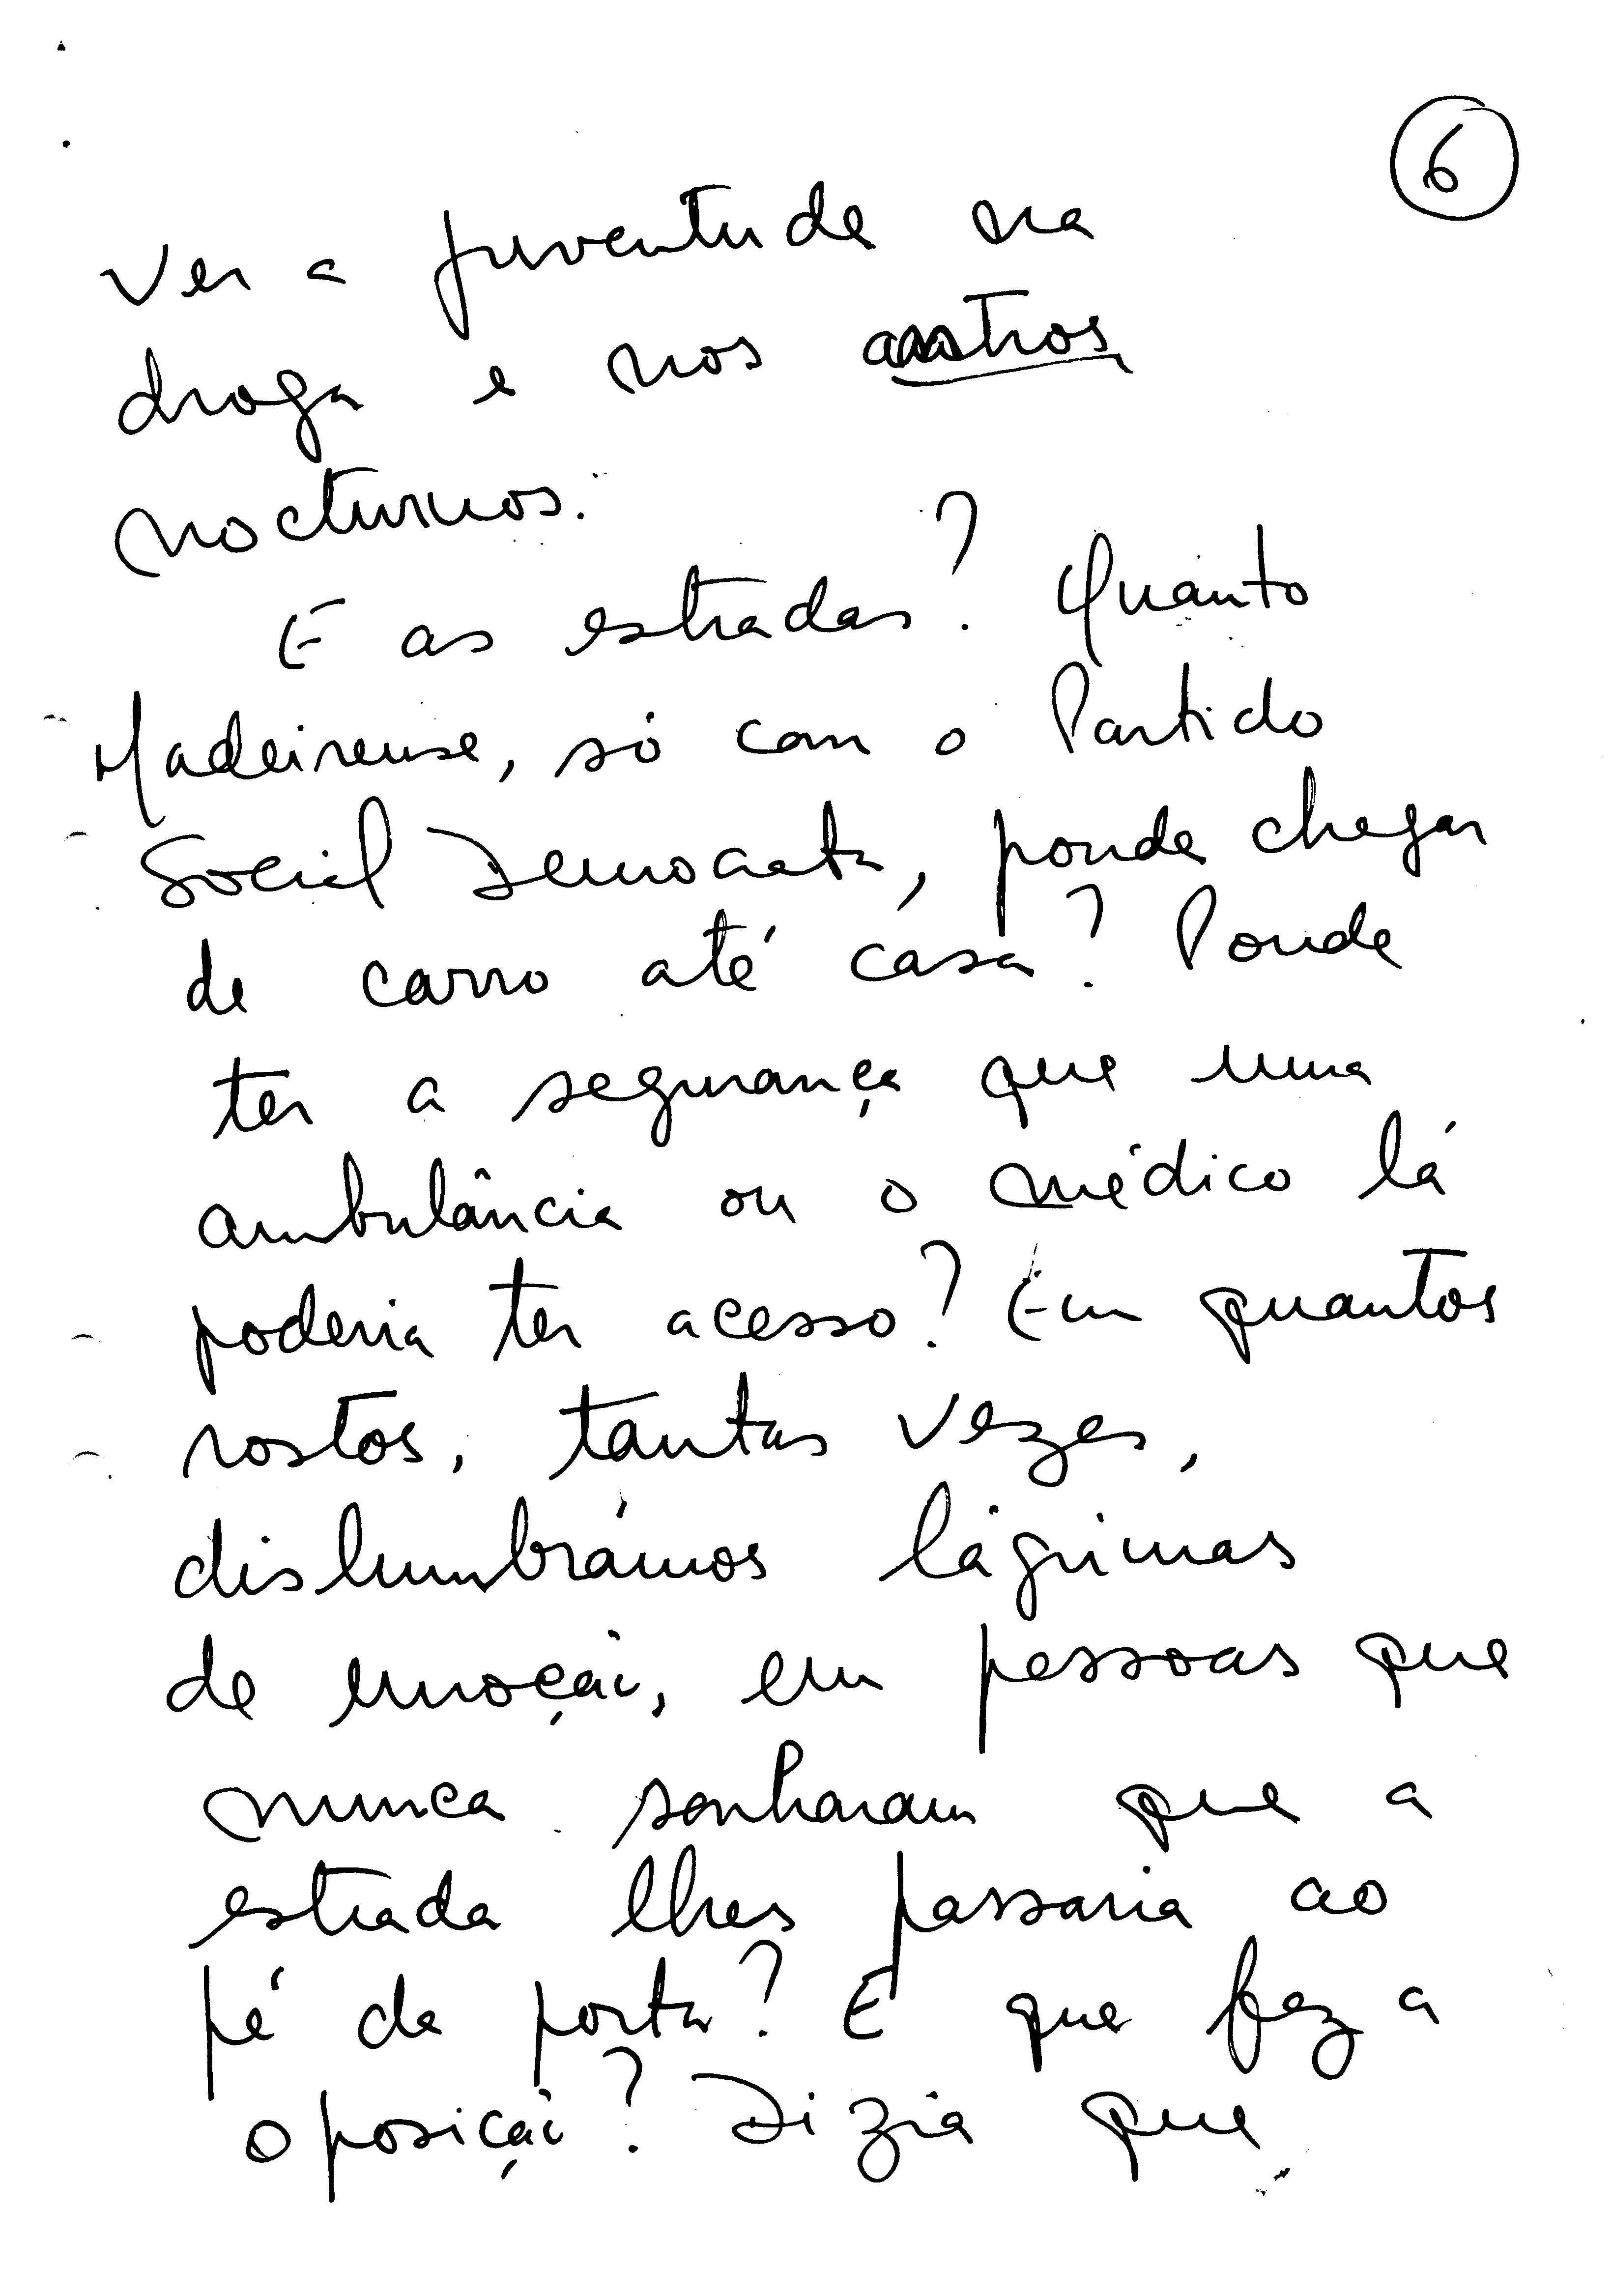 6
ver a juventude na
droga e nos antros
nocturnos.
E as estradas? Quanto
Madeirense, só com o Partido
Social Democrata, poude chegar
de carro até casa? Poude
ter a segurança que uma
ambulância ou o médico lá
poderia ter acesso? Em quantos
rostos, tantas vezes,
dislumbrámos lágrimas
de emoção, em pessoas que
nunca sonharam que a
estrada lhes passaria ao
pé da porta? E que fez a
oposição? Dizia que